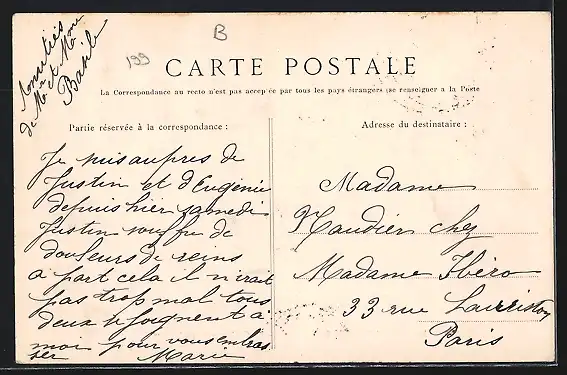 Amitiés
de Mr et Mme
Basile
199
B
CARTE POSTALE
La Correspondance au recto n'est pas acceptée par tous les pays étrangers (se renseigner a la Poste
Partie réservée à la correspondance :
Je suis aupres de
Justin et d'Eugénie
depuis hier samedi
Justin souffre de
douleurs de reins
a part cela il n'irait
pas trop mal tous
deux se joignent à
moi pour vous embras
ser Marie
Adresse du destinataire :
Madame
Naudier chez
Madame Ibéro
33 rue Lauriston
Paris